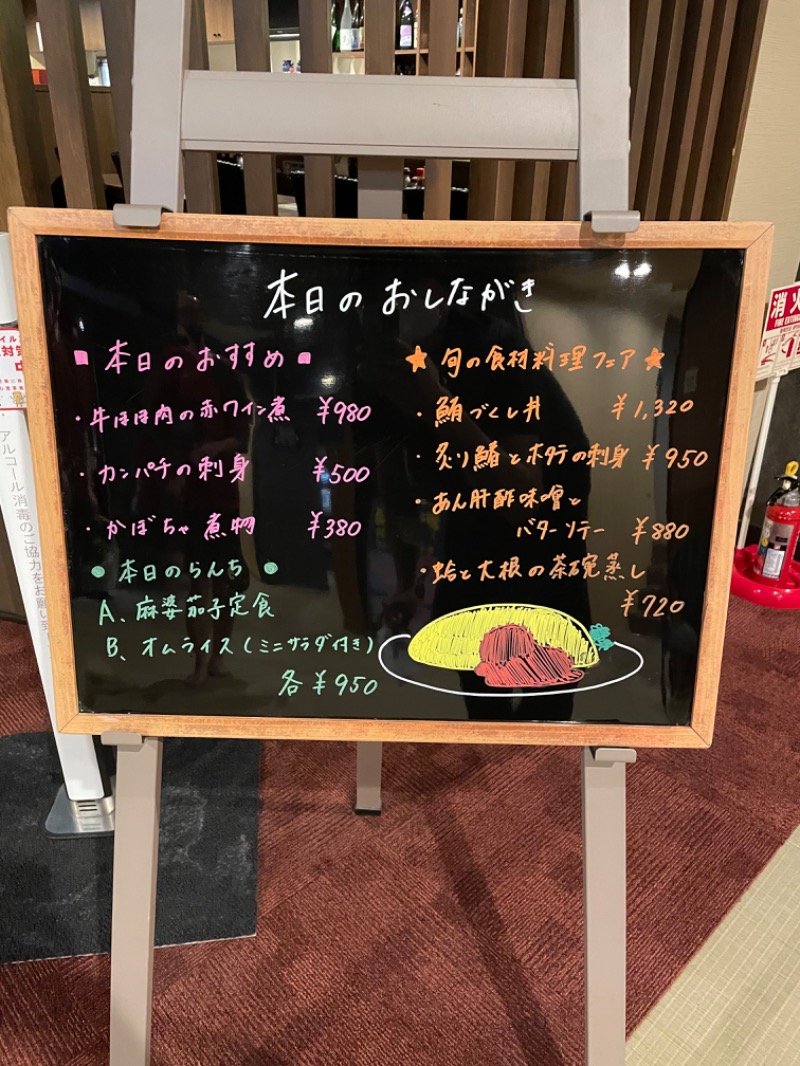 本日のおしながき
■ 本日のおすすめ ■
・牛ほほ肉の赤ワイン煮 ¥980
・カンパチの刺身 ¥500
・かぼちゃ煮物 ¥380
● 本日のらんち ●
A、麻婆茄子定食
B、オムライス(ミニサラダ付き)
各¥950
★ 旬の食材料理フェア ★
・鮪づくし丼 ¥1,320
・炙り鰆とホタテの刺身 ¥950
・あん肝酢味噌と
バターソテー ¥880
・蛤と大根の茶碗蒸し
¥720
アルコール消毒のご協力をお願い
消火